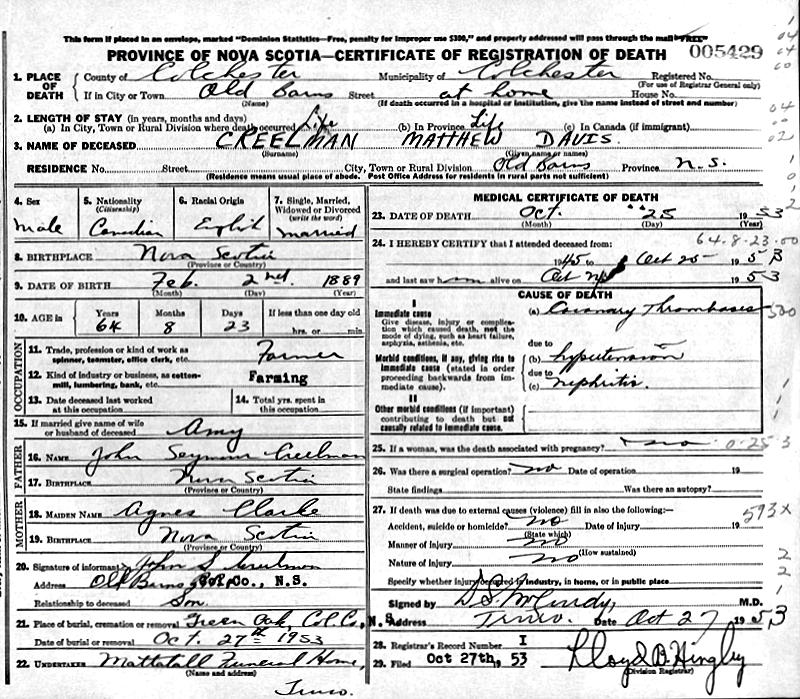 This form if placed in an envelope, marked "Dominion Statistics—Free, penalty for improper use $300," and properly addressed will pass through the mail "FREE"
PROVINCE OF NOVA SCOTIA—CERTIFICATE OF REGISTRATION OF DEATH 005429
1. PLACE OF DEATH County of Colchester Municipality of Colchester Registered No.
(For use of Registrar General only)
If in City or Town Old Barns Street at home House No.
(Name) (If death occurred in a hospital or institution, give the name instead of street and number)
2. LENGTH OF STAY (in years, months and days)
(a) In City, Town or Rural Division where death occurred Life (b) In Province Life (c) In Canada (if immigrant)
3. NAME OF DECEASED CREELMAN MATTHEW DAVIS.
(Surname) (Given name or names)
RESIDENCE No. Street City, Town or Rural Division Old Barns Province N.S.
(Residence means usual place of abode. Post Office Address for residents in rural parts not sufficient)
4. Sex 5. Nationality (Citizenship) 6. Racial Origin 7. Single, Married, Widowed or Divorced (write the word)
Male Canadian English married
8. BIRTHPLACE Nova Scotia
(Province or Country)
9. DATE OF BIRTH Feb. 2nd. 1889
(Month) (Day) (Year)
10. AGE in Years Months Days If less than one day old
64 8 23 hrs. or min.
OCCUPATION
11. Trade, profession or kind of work as spinner, teamster, office clerk, etc. Farmer
12. Kind of industry or business, as cotton-mill, lumbering, bank, etc. Farming
13. Date deceased last worked at this occupation 14. Total yrs. spent in this occupation
15. If married give name of wife or husband of deceased Amy
FATHER
16. NAME John Seymour Creelman
17. BIRTHPLACE Nova Scotia
(Province or Country)
MOTHER
18. MAIDEN NAME Agnes Clarke
19. BIRTHPLACE Nova Scotia
(Province or Country)
20. Signature of informant John S. Creelman
Address Old Barns Col. Co., N.S.
Relationship to deceased Son
21. Place of burial, cremation or removal Green Oak, Col. Co., N.S.
Date of burial or removal Oct. 27th 1953
22. UNDERTAKER Mattatall Funeral Home,
(Name and address)
Truro.
MEDICAL CERTIFICATE OF DEATH
23. DATE OF DEATH Oct. 25 1953
(Month) (Day) (Year)
64.8.23.00
24. I HEREBY CERTIFY that I attended deceased from:
1945 to Oct 25 1953
and last saw h alive on Oct 1953
CAUSE OF DEATH
I
Immediate cause
Give disease, injury or complication which caused death, not the mode of dying, such as heart failure, asphyxia, asthenia, etc.
(a) Coronary Thrombosis
due to
Morbid conditions, if any, giving rise to immediate cause (stated in order proceeding backwards from immediate cause).
(b) hypertension
due to
(c) nephritis.
II
Other morbid conditions (if important) contributing to death but not causally related to immediate cause.
25. If a woman, was the death associated with pregnancy? no 0-25 3
26. Was there a surgical operation? no Date of operation 19
State findings Was there an autopsy?
27. If death was due to external causes (violence) fill in also the following:—
593x
Accident, suicide or homicide? no Date of injury 19
(State which)
Manner of injury no
(How sustained)
Nature of injury no
Specify whether injury occurred in industry, in home, or in public place
Signed by D.S. McCurdy, M.D.
Address Truro. Date Oct 27 1953
28. Registrar's Record Number I
29. Filed Oct 27th, 53 Lloyd B. Hingley
(Division Registrar)